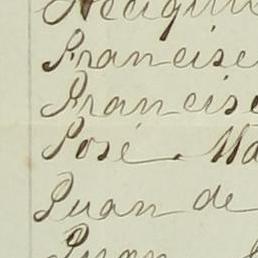 Francisc
Francisc
José Ma
Juan de
Juan